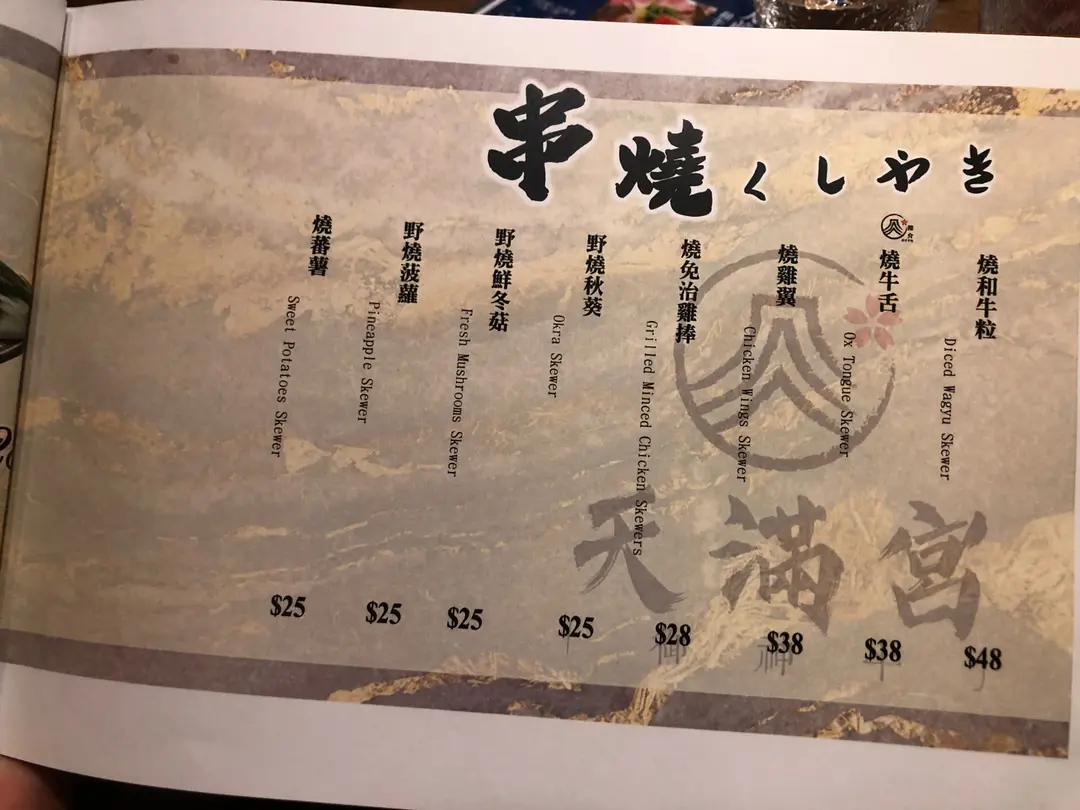 串燒くしやき
燒和牛粒
Diced Wagyu Skewer
$48
燒牛舌
Ox Tongue Skewer
$38
燒雞翼
Chicken Wings Skewer
$38
燒免治雞捧
Grilled Minced Chicken Skewers
$28
野燒秋葵
Okra Skewer
$25
野燒鮮冬菇
Fresh Mushrooms Skewer
$25
野燒菠蘿
Pineapple Skewer
$25
燒蕃薯
Sweet Potatoes Skewer
$25
天滿宮